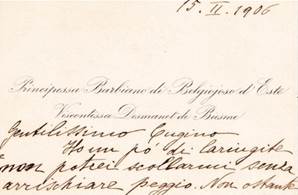 15. II. 1906
Principessa Barbiano di Belgiojoso d'Este
Viscontessa Desmanet de Biesme
Gentilissimo Cugino
Ho un po' di laringite
e non potrei scollarmi senza
arrischiare peggio. Non ostante